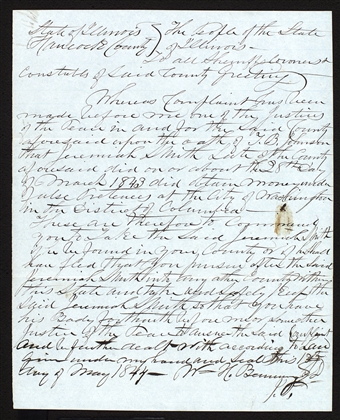 State of Illinois } The People of the State
Hancock County } of Illinois —
To all Sheriffs Coroners &
Constables of Said County Greeting
Whereas Complaint has been
made before me one of the Justices
of the Peace in and for the Said County
aforesaid upon the oath of T. B. Johnson
that Jeremiah Smith Late of the County
aforesaid did on or about the 28th day
of March 1843 did obtain money under
false pretences at the City of Washington
in the District of Columbia —
These are therefore to Command
you to take the Said Jeremiah Smith
if he be found in your County or if he shall
have fled that you pursue after the said
Jeremiah Smith into any other County within
this State and take and safely keep the
Said Jeremiah Smith so that you have
his Body forthwith before me or some other
Justice of the Peace to answer the Said Complaint
and be further dealt with according to Law
Given under my hand and Seal this
day of May 1844 — Wm H.
J. P.